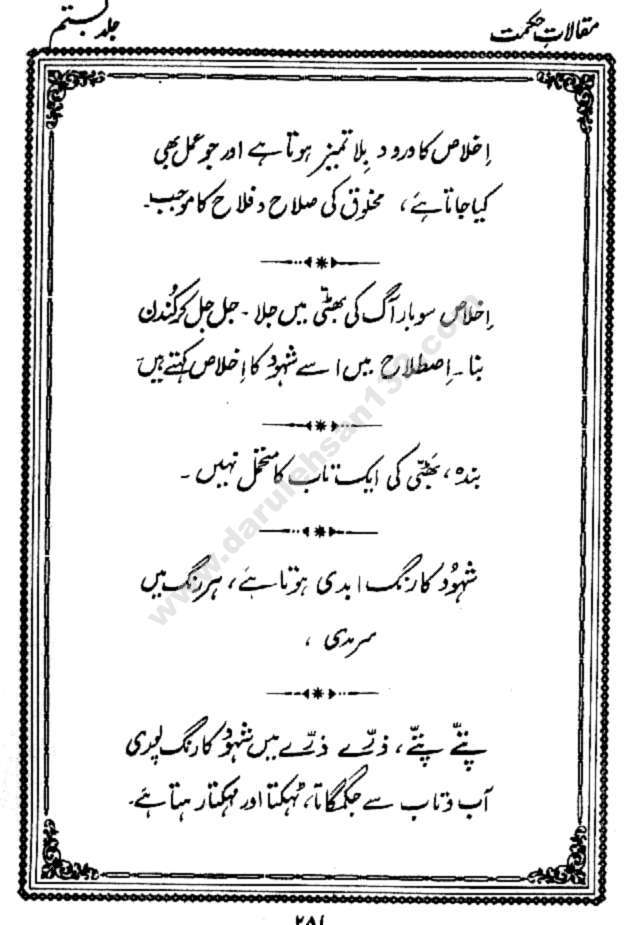 مقالاتِ حکمت
جلد بستم
اِخلاص کا ورود بِلا تمیز ہوتا ہے اور جو عمل بھی
کیا جاتا ہے، مخلوق کی صلاح و فلاح کا موجب۔
اِخلاص سو بار آگ کی بھٹی میں جلا ۔ جل جل کر کُندن
بنا ۔ اِصطلاح میں اسے شہُود کا اِخلاص کہتے ہیں
بندہ، بھٹّی کی ایک تاب کا متحمّل نہیں ۔
شہُود کا رنگ ابدی ہوتا ہے، ہر رنگ میں
سرمدی ،
پتّے پتّے، ذرّے ذرّے میں شہُود کا رنگ پوری
آب و تاب سے جگمگاتا، ٹہکتا اور مہکتا رہتا ہے۔
۲۸۱
www.darulehsan139.com